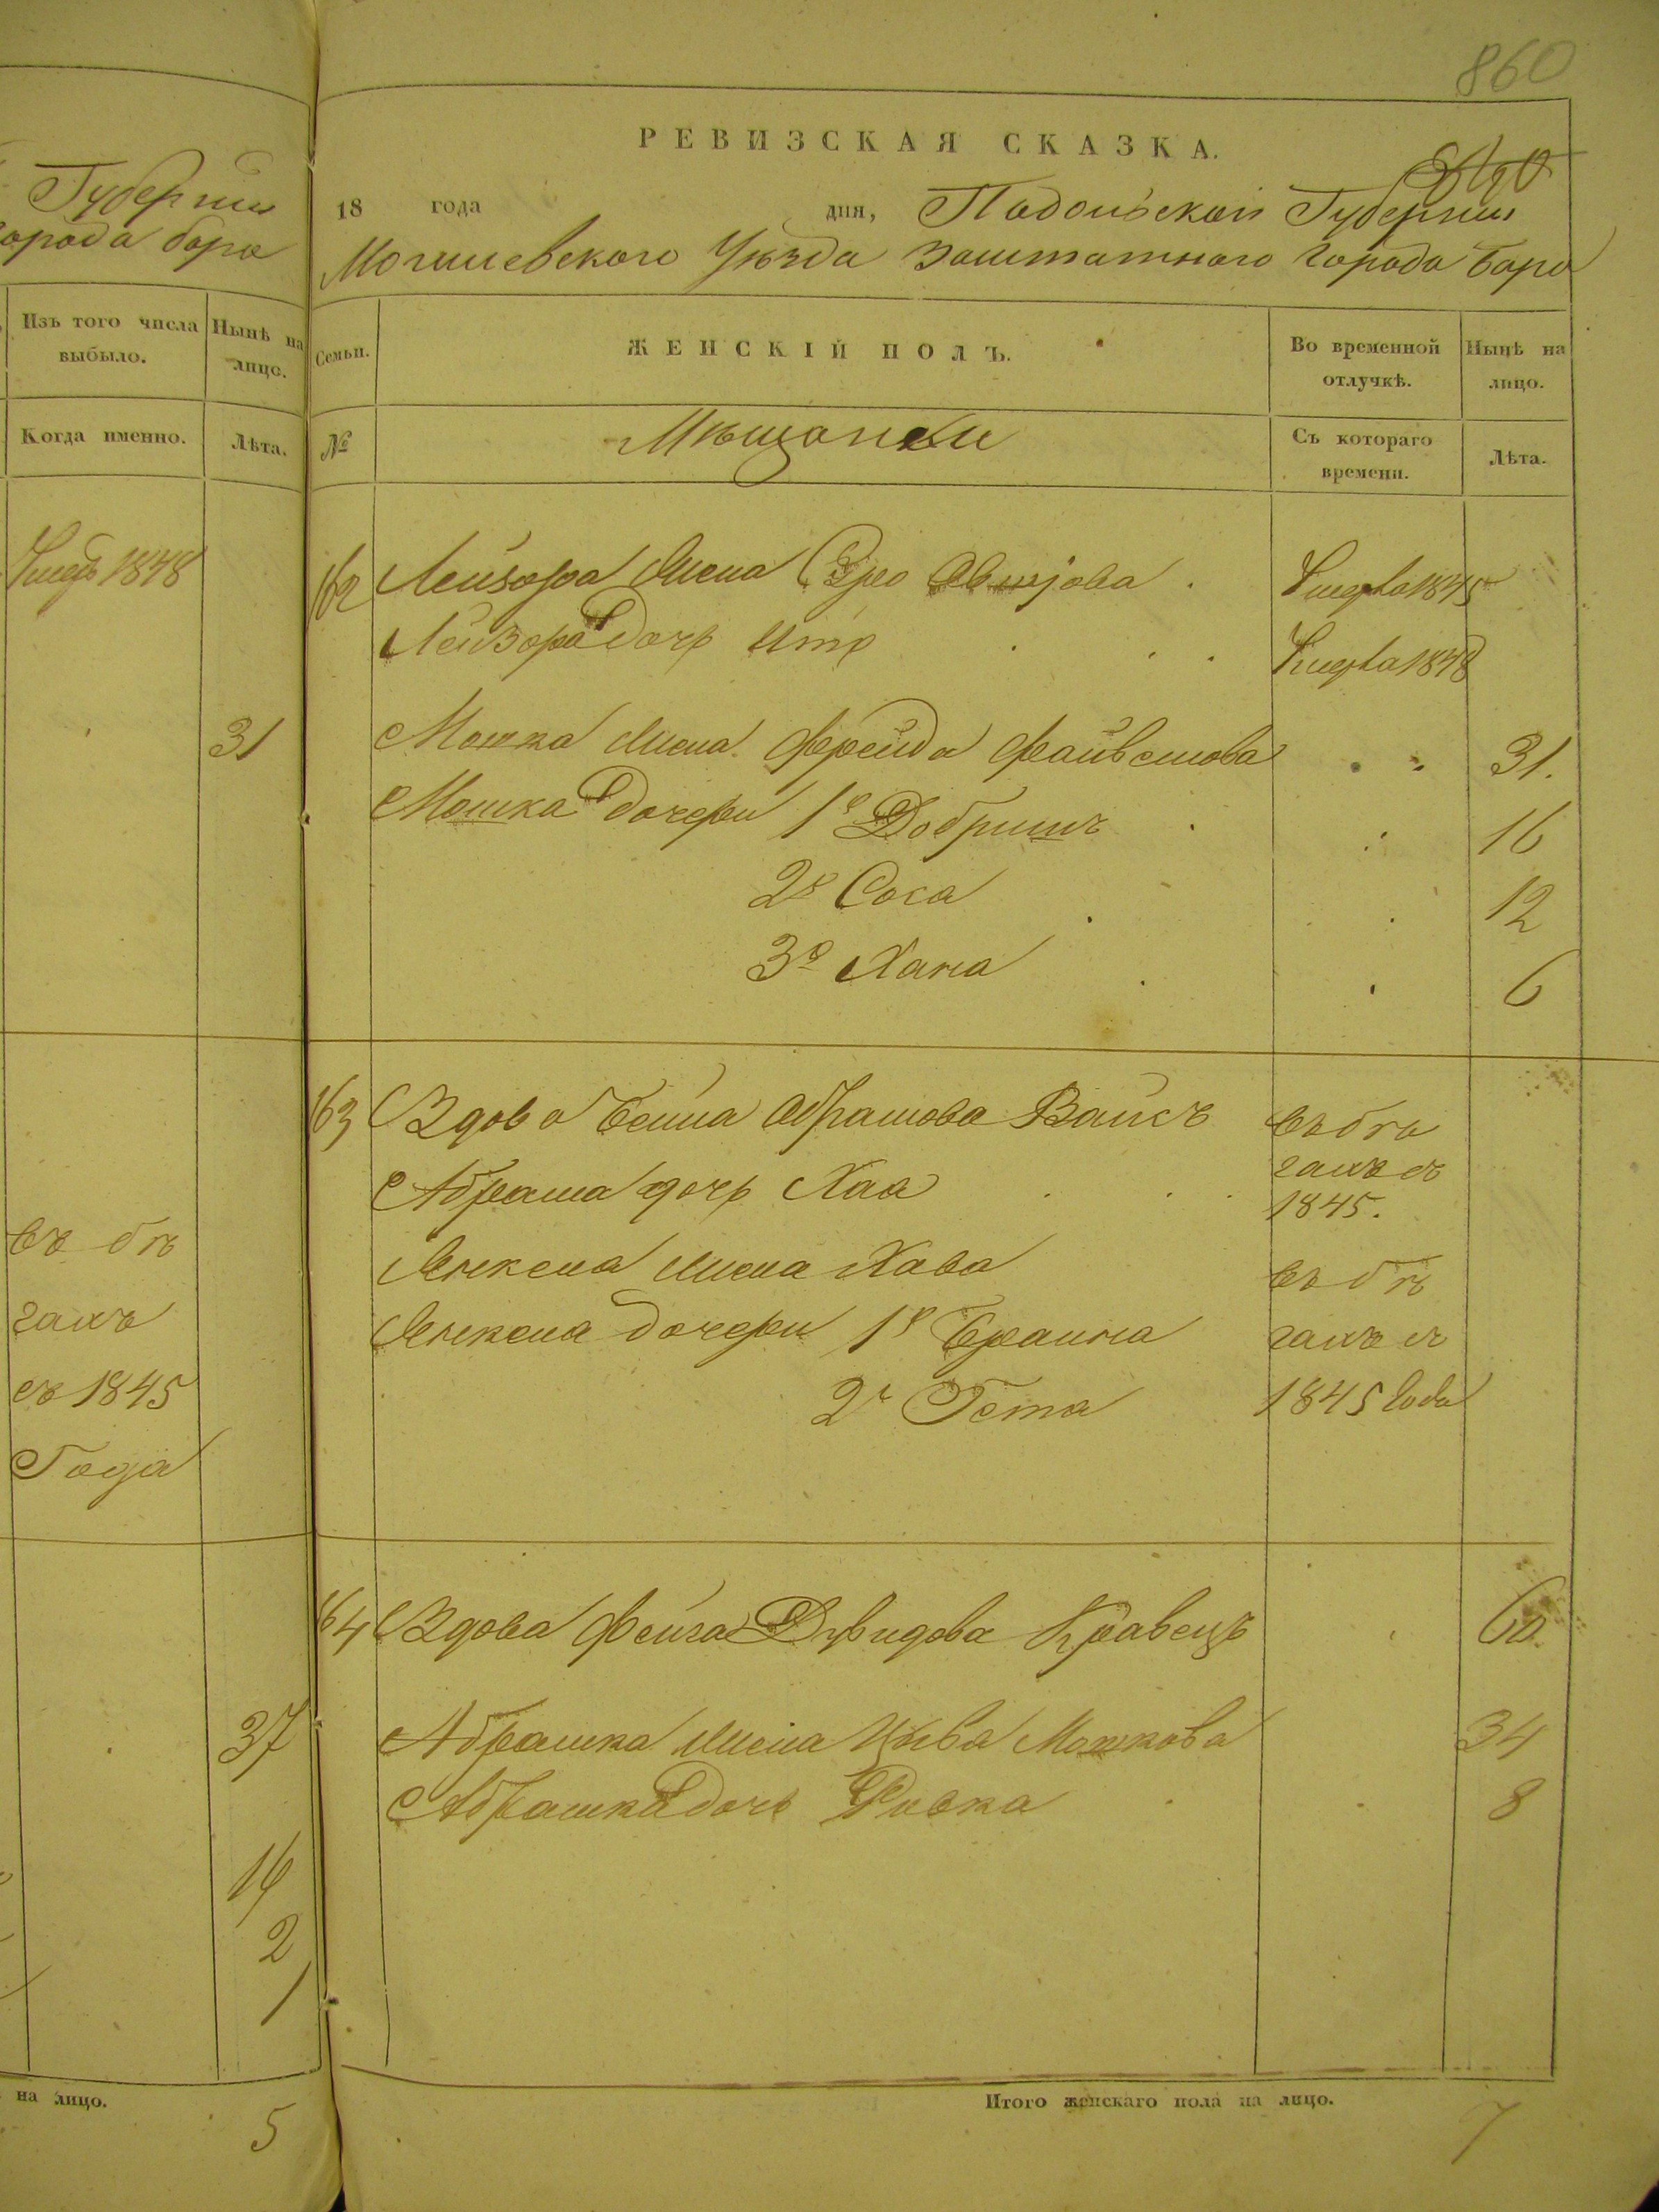 860
Губерніи
города бара
Изъ того числа выбыло.
Нынѣ на лице.
Когда именно.
Лѣта.
1848
31
въ бѣ
гахъ
съ 1845
Года
37
14
2
1
на лицо.
5
РЕВИЗСКАЯ СКАЗКА.
18 года дня, Подольской Губерніи
Могилевского Уѣзда Заштатного города Бара
Семьи.
ЖЕНСКІЙ ПОЛЪ.
Во временной отлучкѣ.
Нынѣ на лицо.
№
Мѣщанки
Съ котораго времени.
Лѣта.
162 Лейзора жена Умерла 1845
Лейзора дочь Умерла 1848
Мошка жена Фрейда Файвелова 31.
Мошка дочери 1я Добришъ 16
2я Соса 12
3я Хана 6
163 Вдова Бейла Абрамова Вайсъ въ бѣ
гахъ съ
Абрама дочь Хая 1845.
жена Хава въ бѣ
дочери 1я Браина гахъ съ
2я Гета 1845 Года
164 Вдова Фейга Давидова Кравецъ 60
Абрашка жена Цива Мошкова 34
Абрашка дочь Ривка 8
Итого женскаго пола на лицо.
7